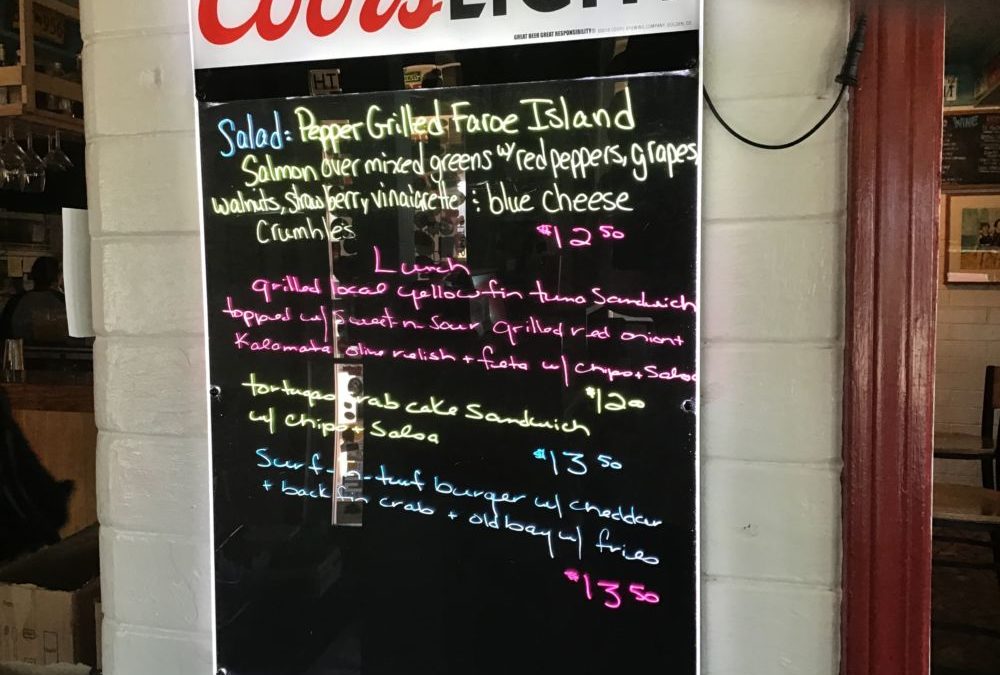 Coors LIGHT
GREAT BEER GREAT RESPONSIBILITY
Salad: Pepper Grilled Faroe Island
Salmon over mixed greens w/ red peppers, grapes,
walnuts, strawberry vinaigrette : blue cheese
Crumbles $12 50
Lunch
grilled local yellowfin tuna Sandwich
topped w/ Sweet n Sour grilled red onion +
Kalamata olive relish + feta w/ chips + Salsa
$12 00
tortugas crab cake Sandwich
w/ chips + Salsa
$13 50
Surf-n-turf burger w/ cheddar
+ backfin crab + old bay w/ fries
$13 50
WINE